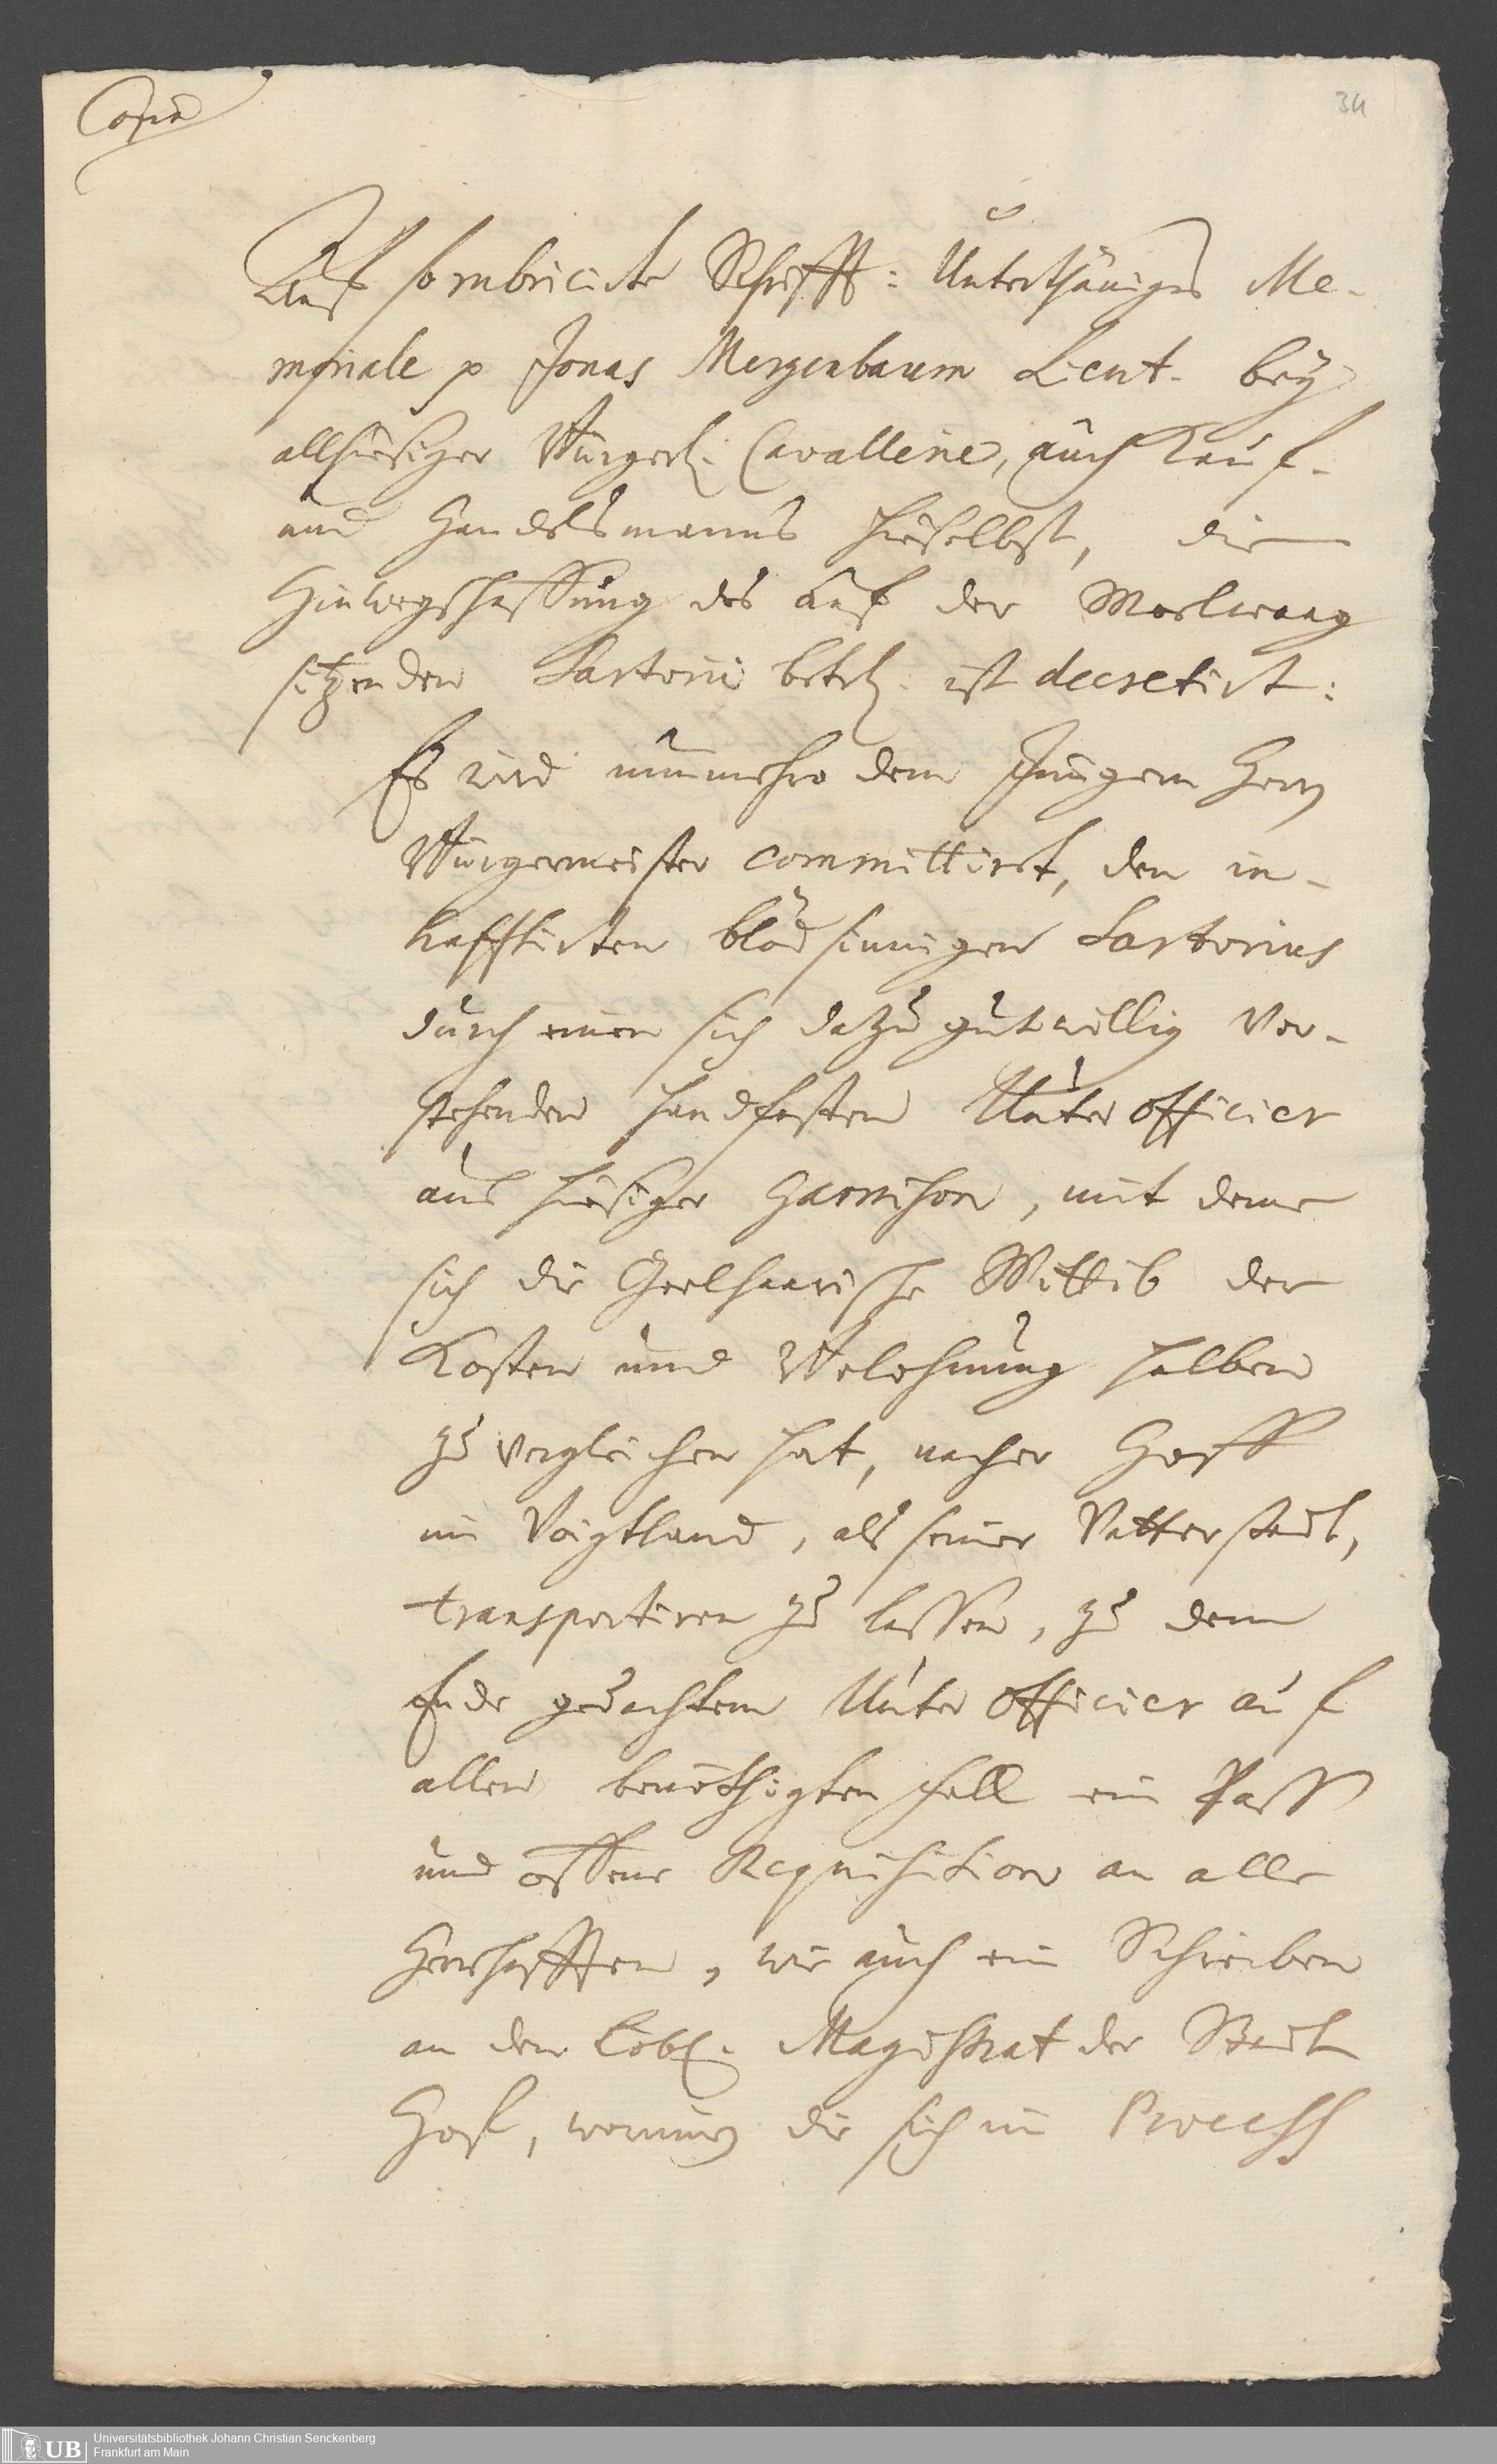 Copia
34
Auf so rubricirte Schrifft: Unterthäniges Me-
moriale p Jonas Mergenbaum Lieut. bey
allhiesiger Bürgerl. Cavallerie, auch Kauf-
und Handelsmanns hieselbst, die
Hinwegschaffung des auf der Meelwaag
sitzenden Sartorii betrl. ist decretirt:
Es wird nunmehro dem Jüngern Herrn
Bürgermeister committirt, den in-
hafftirten blödsinnigen Sartorius
durch einen sich dazu gutwillig ver-
stehenden handfesten Unter officier
aus hiesiger Garnison, mit deme
sich die Geelhaarische Wittib der
Kosten und Belohnung halben
zu vergleichen hat, nacher Hoff
im Voigtland, als seiner Vatterstadt,
transportiren zu lassen, zu dem
Ende gedachtem Unter officier auf
allen benöthigten fall ein Pass
und offene Requisition an alle
Herrschafften, wie auch ein Schreiben
an den löbl. Magistrat der Stadt
Hof, worinn die sich im Process
Universitätsbibliothek Johann Christian Senckenberg
Frankfurt am Main
UB